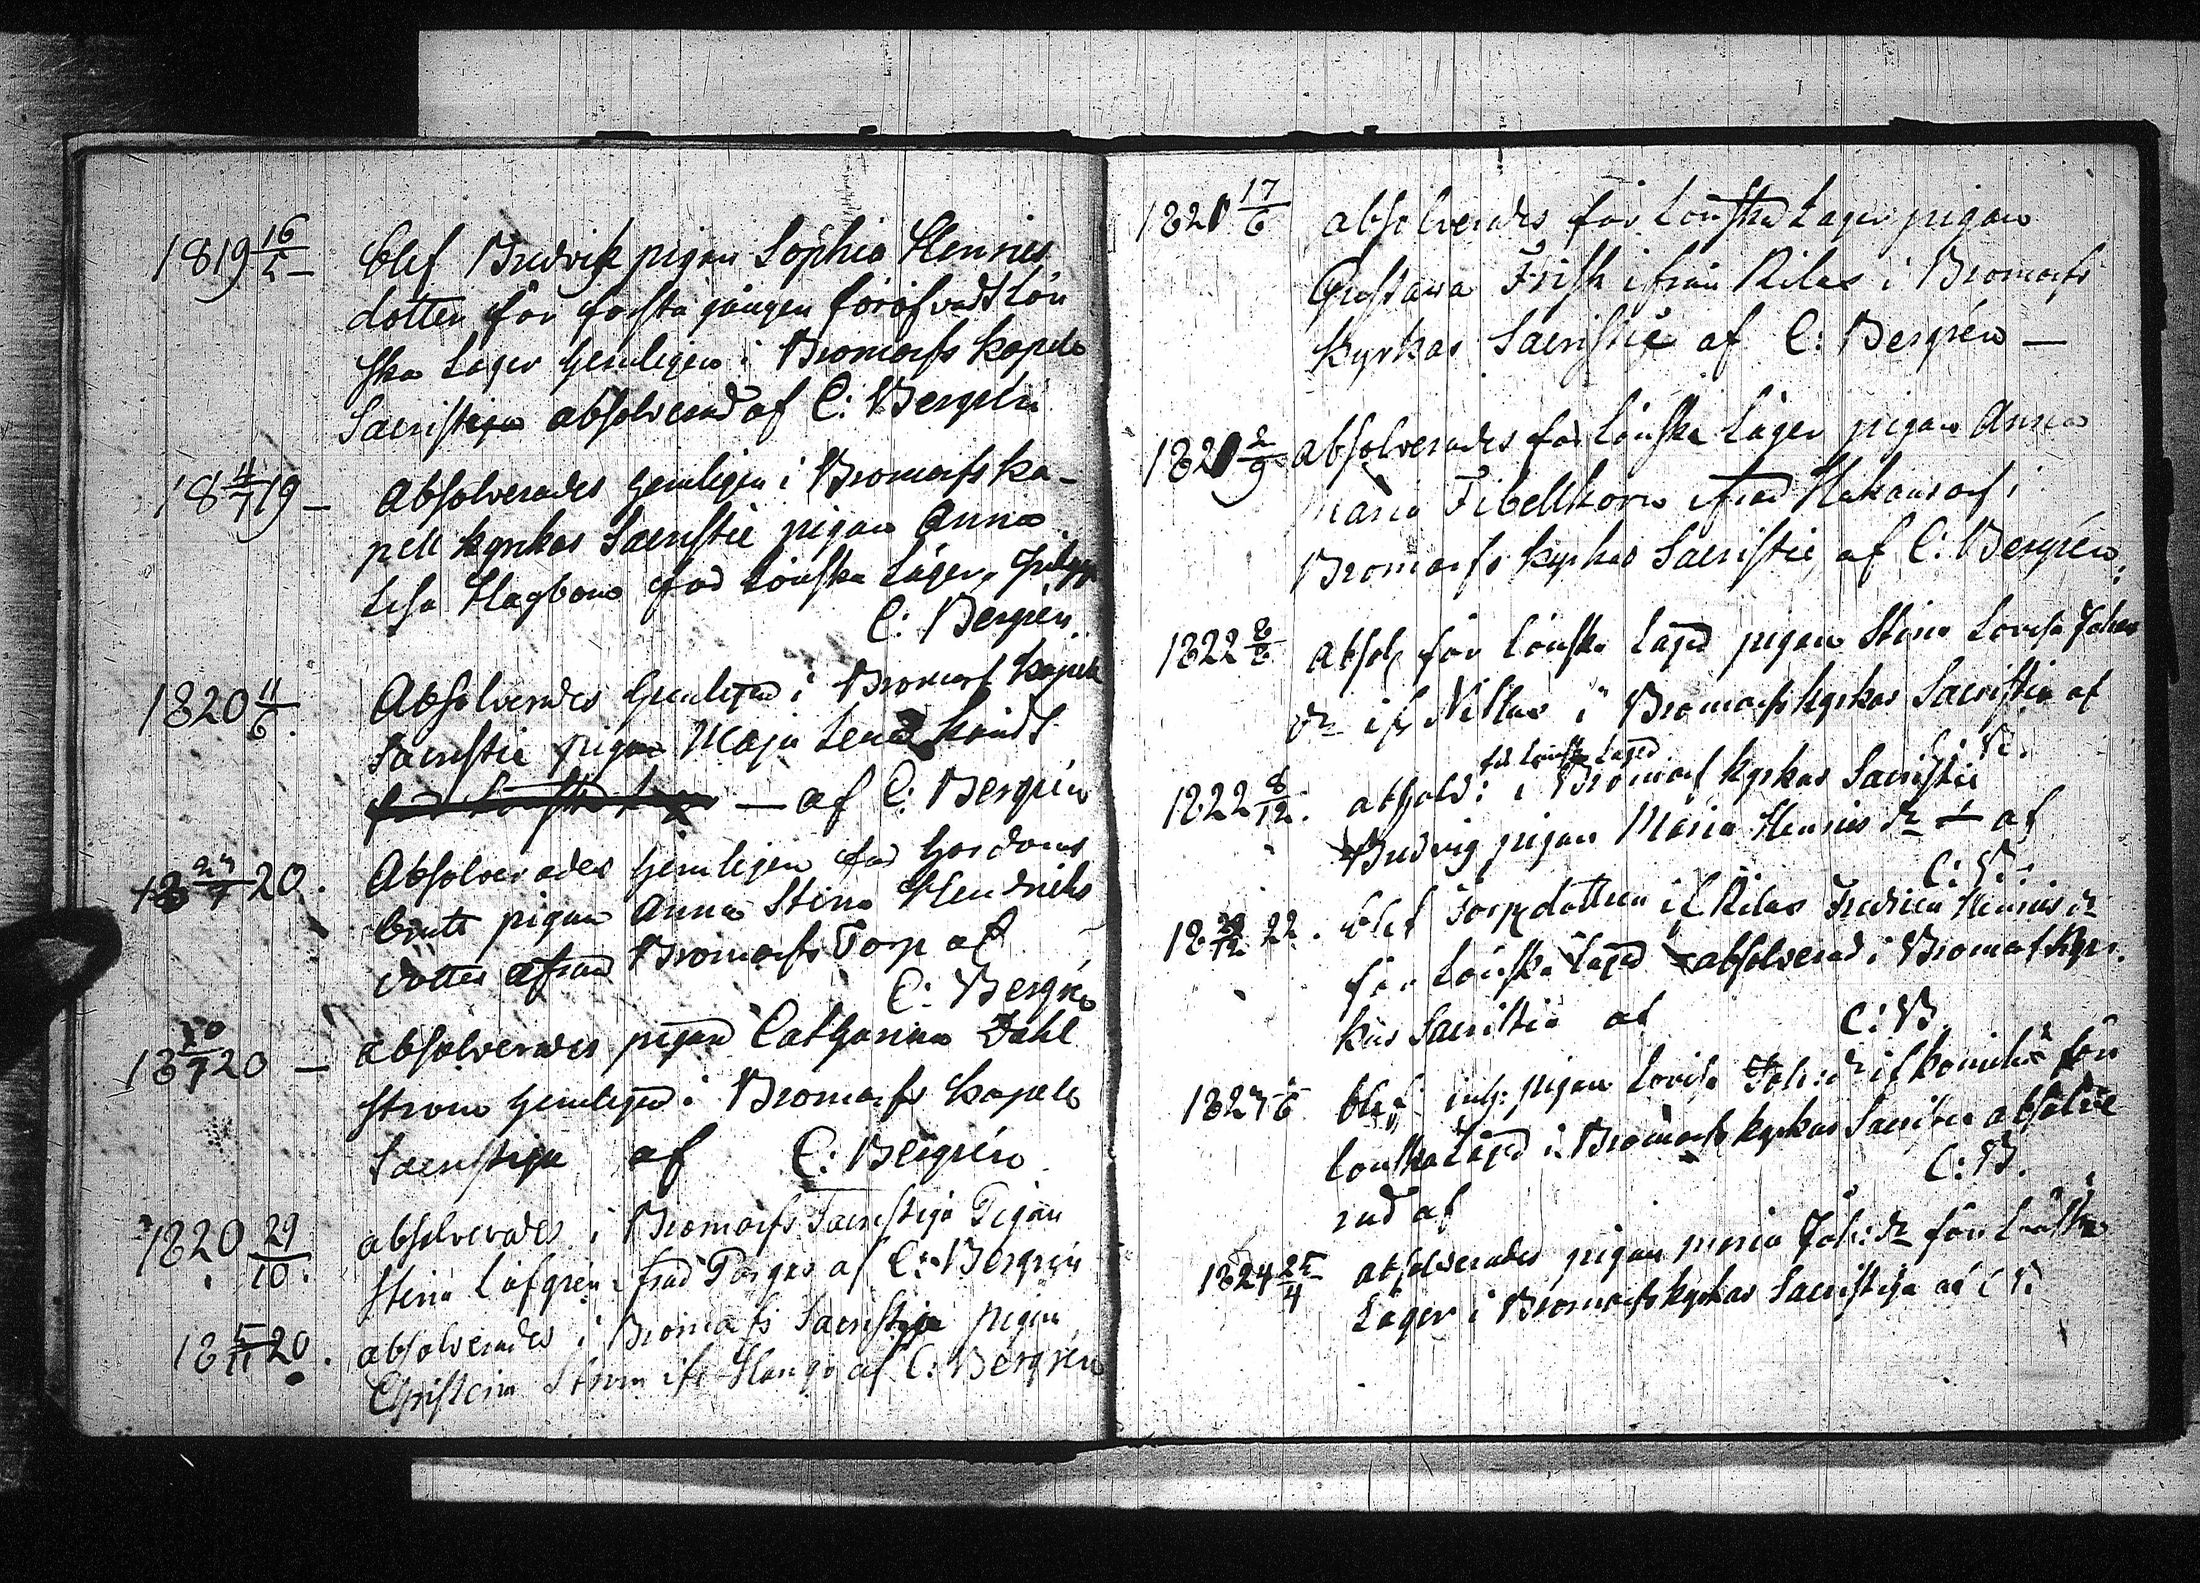 1819 16/5 – blef Bredvik pigan Sophia Henries
dotter för första gången föröfvadt Lön
ska Läger hemligen i Bromarfs kapels
Sacristian absolverad af C: Bergrén
18 4/7 19 – Absolverades hemligen i Bromarfs ka-
pell kyrkas Sacristie pigan Anna
Lisa Hagbom för Lönska Läger,
C: Bergrén.
1820 11/6. Absolverades hemligen i Bromarf kapels
Sacristie pigan Maja Lena
för Lönska Läger — af C: Bergrén
18 /7 20. Absolverades hemligen för hordoms
brott pigan Anna Stina Hendrichs
dotter ifrån Bromarfs Torp af
C: Bergrén
18 20/9 20 — absolverades pigan Catharina Dahl
ström hemligen i Bromarfs kapels
Sacristiga af C: Bergrén
1820 29/10. absolverades i Bromarfs Sacristiga Pigan
Stina Löfgren ifrån Pargas af C: Bergrén
18 5/11 20. absolverades i Bromarfs Sacristiga pigan
Christina Ström ifr Hangö af C: Bergrén
1821 17/6 absolverades för Lönska Läger pigan
Gustava Frisk ifrån Rilax i Bromarfs
Kyrkas Sacristie af C: Bergrén —
1821 2/9 absolverades för Lönska Läger pigan Anna
Maria Fibellkorn ifrån Håkansarf i
Bromarfs kyrkas Sacristie af C: Bergrén.
1822 absol för Lönska Läger pigan Stina Lovisa Johans
dr if i Bromarfs kyrkas Sacristia af
C: B.
för Lönska Läger
1822 8/12. absolv: i Bromarf kyrkas Sacristie
Bredvig pigan Maria Henries dr — af
C: B.
18 29/12 22. blef Torpdottren if Rilax Fredrica Henries dr
för Lönska Läger absolverad i Bromarf Kyr-
kas Sacristia af C: B.
182 blef inh: pigan Lovisa Joh: dr if för
Lönska Läger i Bromarfs kyrkas Sacristie absolve
rad af C: B.
1824 25/4 absolverades pigan Maria Joh: dr för Lönska
Läger i Bromarfs kyrkas Sacristiga af C B.